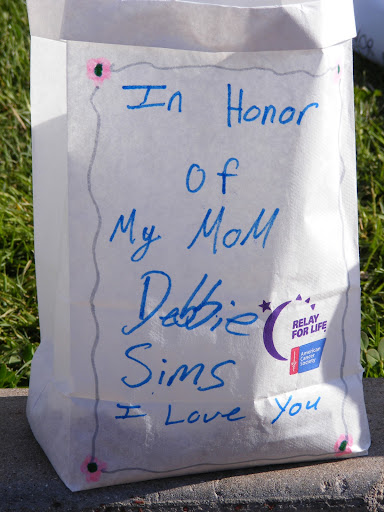 In Honor
Of
My MoM
Debbie
Sims
I Love You
RELAY
FOR LIFE
American
Cancer
Society